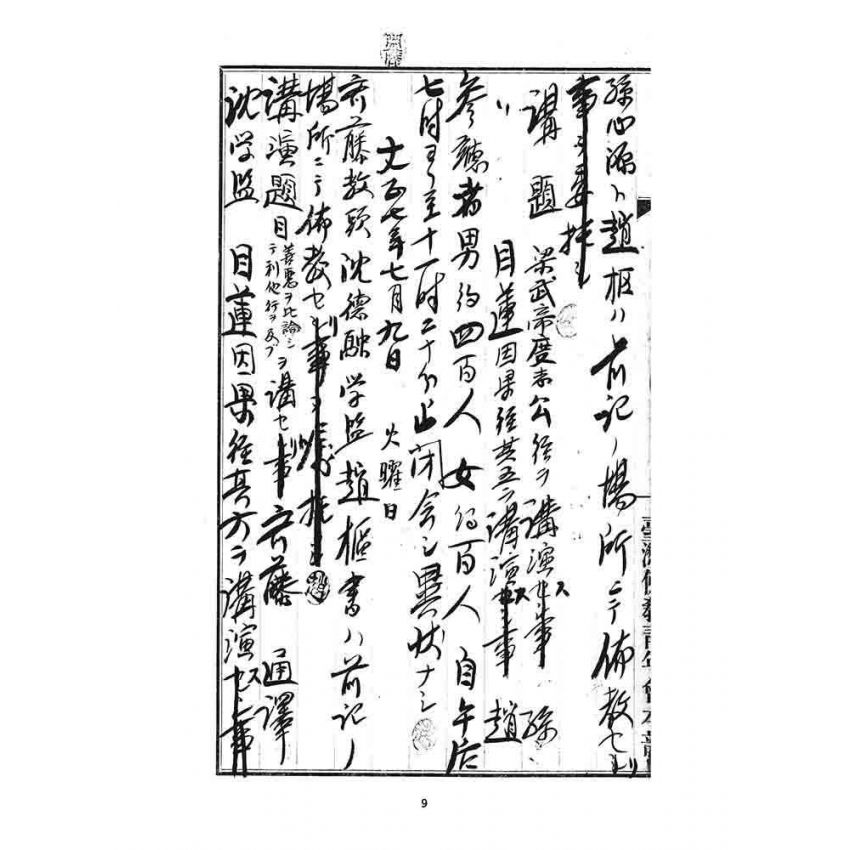 孫心源ト趙枢ハ前記ノ場所ニテ佈教セリ
事ヲ委
講題 梁武帝度衆公経ヲ講演ス 孫
〃 目蓮因果経其五ヲ講演ス 趙
參聴者男約四百人女約百人自午后
七時ヨリ至十一時二十分止閉会シ異状ナシ
大正七年七月九日 火曜日
斉藤教頭沈德融学監趙樞書ハ前記ノ
場所ニテ佈教セリ
講演題目善悪ヲ比論シテ利他行ヲ及ブヲ講セリ 斉藤 通譯
沈学監 目蓮因果経其六ヲ講演ス
臺灣佛教青年會
9